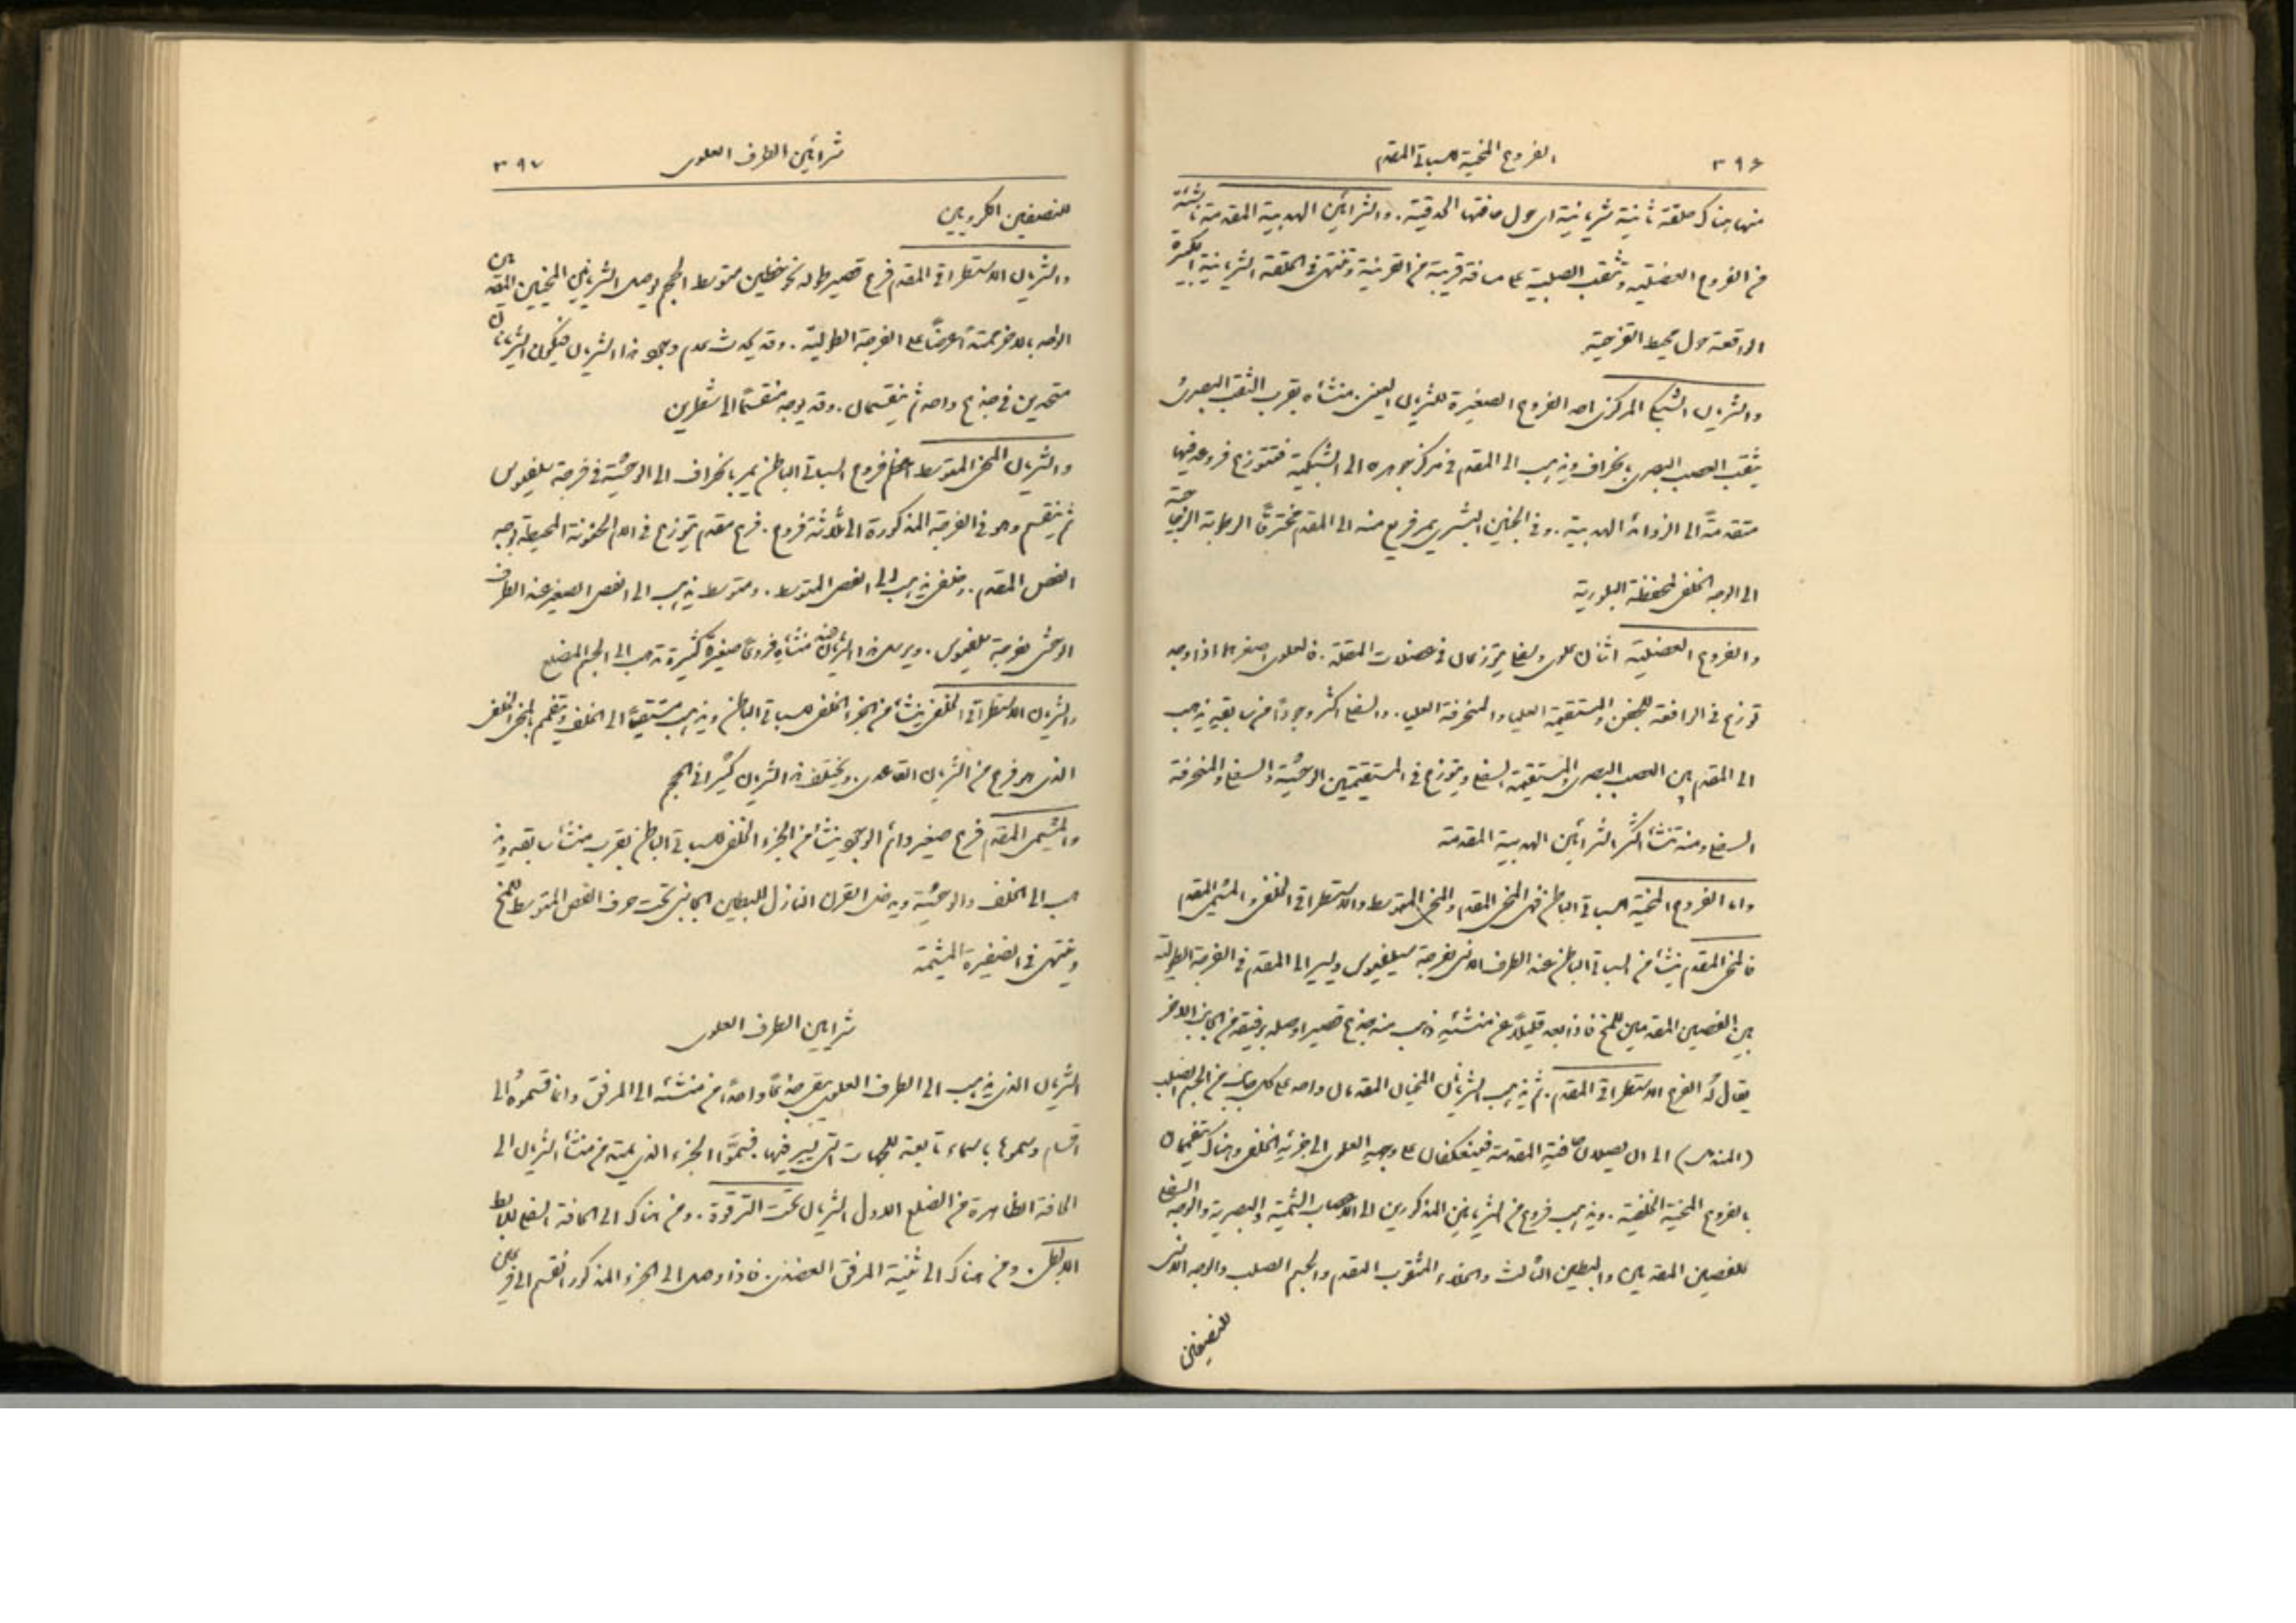 ٣٩٦ الفروع المخية للسباتي المقدم
منها هناك حلقة ثانية شريانية اى حول حافتها الحدقية. والشرايين الهدبية المقدمة ناشئة
من الفروع العضلية وتثقب الصلبية على مسافة قريبة من القرنية وتنتهى فى الحلقة الشريانية الكبيرة
الواقعة حول محيط القزحية
والشريان الشبكى المركزى احد الفروع الصغيرة للشريان العينى. منشاه بقرب الثقب البصرى
يثقب العصب البصرى بانحراف ويذهب الى المقدم فى مركز جوهره الى الشبكية فتتوزع فروعه فيها
متقدمة الى الزوائد الهدبية. وفى الجنين البشرى يمر فريع منه الى المقدم مخترقًا الرطوبة الزجاجية
الى الوجه الخلفى لمحفظة البلورية
والفروع العضلية اثنان علوى وسفلى يتوزعان فى عضلات المقلة. فالعلوى اصغرهما اذا وجد
توزع فى الرافعة للجفن والمستقيمة العليا والمنحرفة العليا. والسفلى اكثر وجودًا من سابقيه يذهب
الى المقدم بين العصب البصرى والمستقيمة السفلى ويتوزع فى المستقيمتين الوحشية والسفلى والمنحرفة
السفلى ومنه تنشأ اكثر الشرايين الهدبية المقدمة
واما الفروع المخية للسباتي الباطن فهى المخى المقدم والمخى المتوسط والاستطراقى الخلفى والمشيمى المقدم
فالمخى المقدم ينشأ من السباتي الباطن عند الطرف الانسى لفرجة سيلفيوس ويسير الى المقدم فى الفرجة الطولية
بين الفصين المقدمين للمخ فاذا بعد قليلاً عن منشئه ذهب منه جذع قصير اوصله برفيقه من الجانب الاخر
يقال له الفرع الاستطراقى المقدم. ثم يذهب الشريانان المخيان المقدمان واحد على كل جانب من الجسم الصلب
(المندمل) الى ان يصلان حافته المقدمة فينعكفان على وجهه العلوى الى جزئه الخلفى وهناك يتفممان
بالفروع المخية الخلفية. ويذهب فروع من الشريانين المذكورين الى الاعصاب الشمية والبصرية والوجه السفلى
للفصين المقدمين والبطين الثالث والخلاء المثقوب المقدم والجسم الصلب والوجه الانسى
للنصفين
شرايين الطرف العلوى ٣٩٧
للنصفين الكرويين
والشريان الاستطراقى المقدم فرع قصير طوله نحو خطين متوسط الحجم يوصل الشريانين المخيين المقدمين
الواحد بالاخر يمتد عرضًا على الفرجة الطولية. وقد يحدث عدم وجود هذا الشريان فيكون الشريانان
متحدين فى جذع واحد ثم ينقسمان. وقد يوجد منقسمًا الى شطرين
والشريان المخى المتوسط اعظم فروع السباتي الباطن يمر بانحراف الى الوحشية فى فرجة سلفيوس
ثم ينقسم وهو فى الفرجة المذكورة الى ثلاثة فروع. فرع مقدم يتوزع فى الام الحنونة المحيطة بوجه
الفص المقدم. وخلفى يذهب الى الفص المتوسط. ومتوسط يذهب الى الفص الصغير عند الطرف
الوحشى لفرجة سلفيوس. ويرسل هذا الشريان عند منشاه فروعًا صغيرة كثيرة تذهب الى الجسم المضلع
والشريان الاستطراقى الخلفى ينشأ من الجزء الخلفى للسباتي الباطن ويذهب مستقيمًا الى الخلف ويتفمم بالمخى الخلفى
الذى هو فرع من الشريان القاعدى. ويختلف هذا الشريان كثيرًا فى الحجم
والمشيمى المقدم فرع صغير دائم الوجود ينشأ من الجزء الخلفى للسباتي الباطن بقرب منشأ سابقه ويذ
هب الى الخلف والوحشية ويدخل القرن النازل للبطين الجانبى تحت حرف الفص المتوسط للمخ
وينتهى فى الضفيرة المشيمة
شرايين الطرف العلوى
الشريان الذى يذهب الى الطرف العلوى يبقى جذعًا واحدًا من منشئه الى المرفق وانما قسموه الى
اقسام وسموها باسماء تابعة للجهات التى يسير فيها. فسموا الجزء الذى يمتد من منشأ الشريان الى
الحافة الظاهرة من الضلع الاول الشريان تحت الترقوة. ومن هناك الى الحافة السفلى للابط
الابطى. ومن هناك الى ثنية المرفق العضدى. فاذا وصل الى الجزء المذكور انقسم الى فرعين